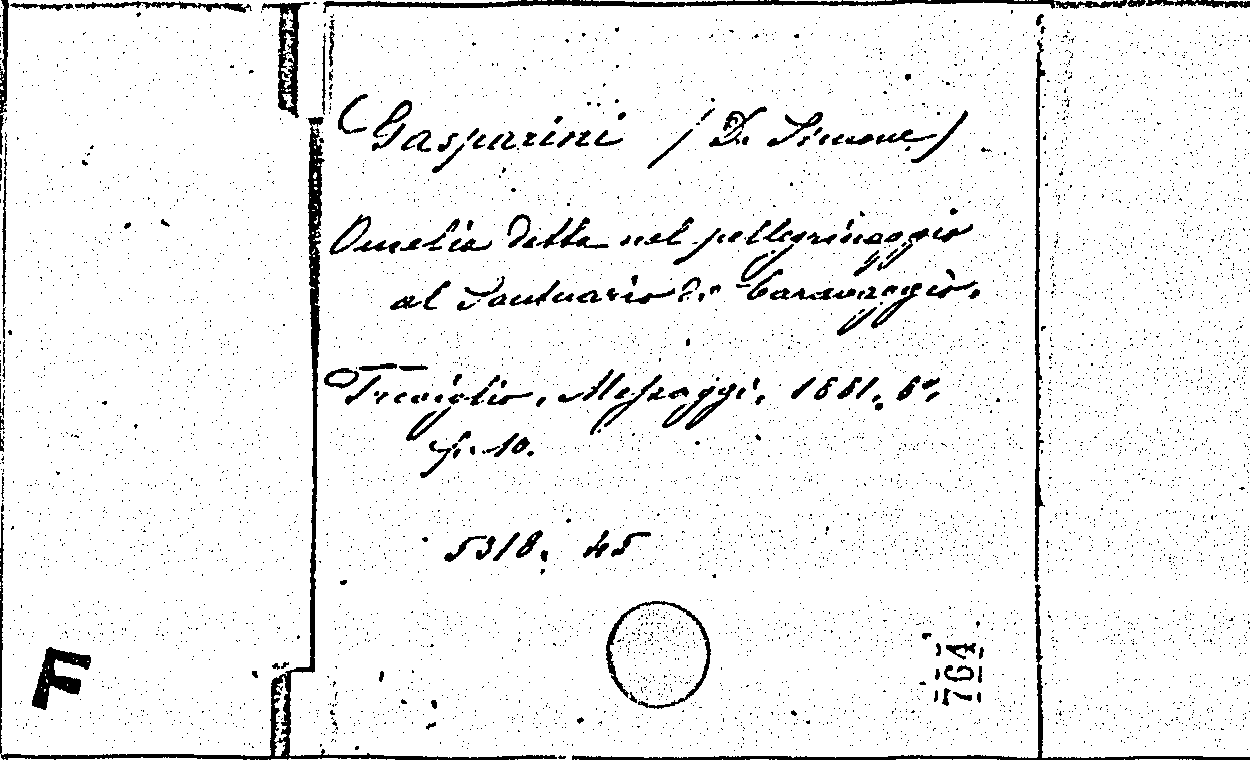 Gasparini (D. Simone)
Omelia detta nel pellegrinaggio
al Santuario di Caravaggio.
Treviglio, Messaggi, 1881. 8°.
p. 10.
5318. 45
F
764